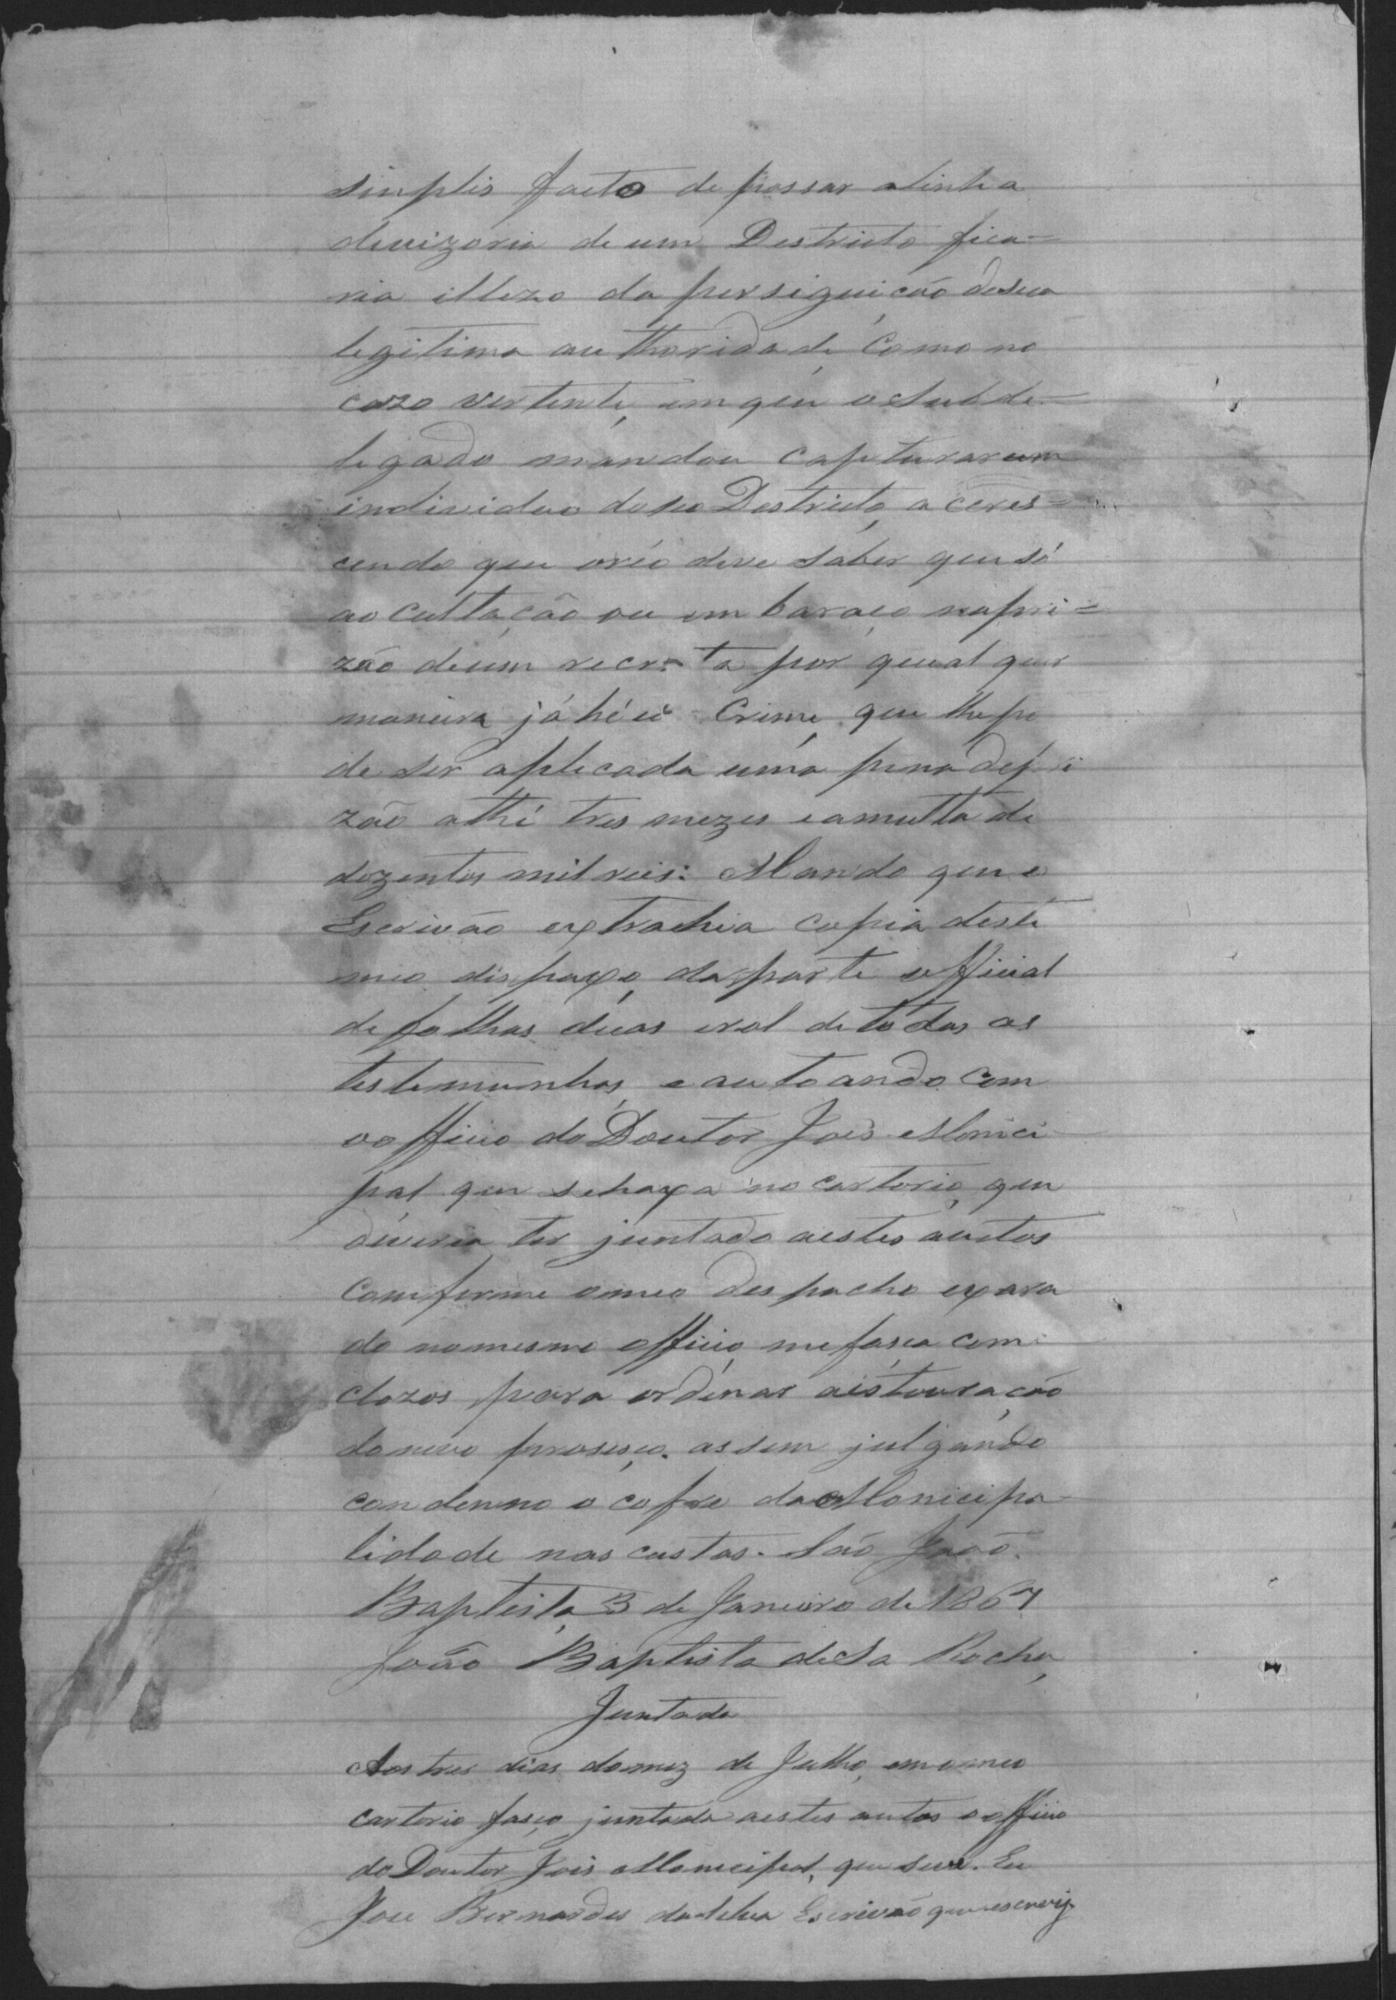 simplis facto de passar alinha
devizoria de um Destricto fica=
ria illezo da perseguição desua
legitima authoridade, como no
cazo vertente, emque o Subde=
legado mandou capturar um
individuo doseo Destricto, acres=
cendo que oréo deve saber que só
aocultação ou embaraço napri=
zão deum recruta por qualquer
maneira já hé Crime, que lhe po
de ser aplicada uma pena depri
zão athé tres mezes e amulta de
dozentos mil reis: Mando que o
Escrivão extrahia copia deste
meo dispaxo, daparte official
de folhas duas erol de todas as
testemunhas, e autoando com
oofficio do Doutor Juis Monici
pal que se haxa no cartorio, que
diveria ter juntado aestes autos
comforme omeo despacho exara
do nomesmo officio, mefasa com
cluzos para ordenar aistauração
donovo prosesço. assim julgando
condenno o cofre da Monicipa=
lidade nas custas. São João
Baptista, 3 de Janeiro de 1867
João Baptista de Sa Rocha,
Juntada
Aos tres dias domez de Julho, em omeo
cartorio faço juntada aestes autos o officio
do Doutor Juis Monicipal, que segue. Eu
Jose Bernardes da Silva Escrivão que escrevy